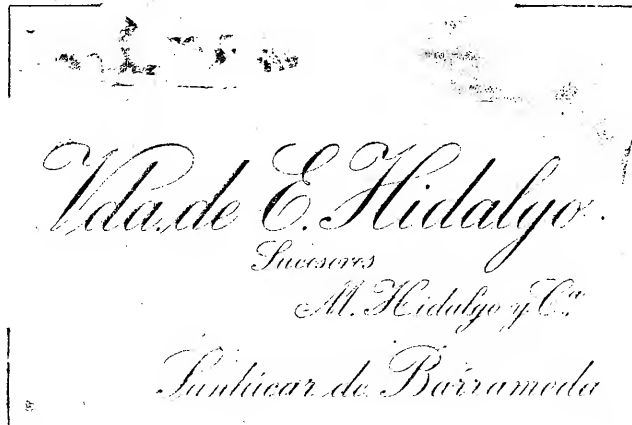 Vda. de E. Hidalgo.
Sucesores
M. Hidalgo y Cª
Sanlúcar de Barrameda